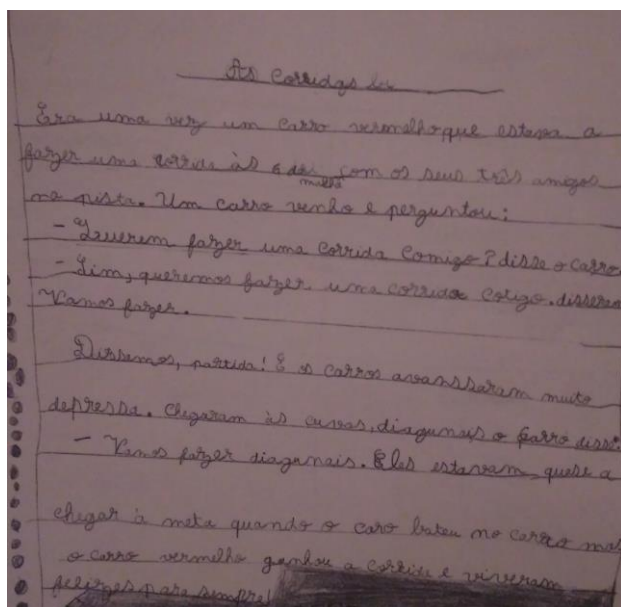 As Corridas
Era uma vez um carro vermelho que estava a
fazer uma corrida às 6 da manhã com os seus três amigos
na pista. Um carro venho e perguntou:
- Querem fazer uma corrida comigo? disse o carro
- Sim, queremos fazer uma corrida cotigo. disseram
Vamos fazer.
Dissemos, partida! E os carros avanssaram muito
depressa. Chegaram às cuvas, diagunais o carro disse:
- Vamos fazer diagunais. Eles estavam, quese a
chegar à meta quando o caro bateu no carro mas
o carro vermelho ganhou a corrida e viveram
felizes para sempre!